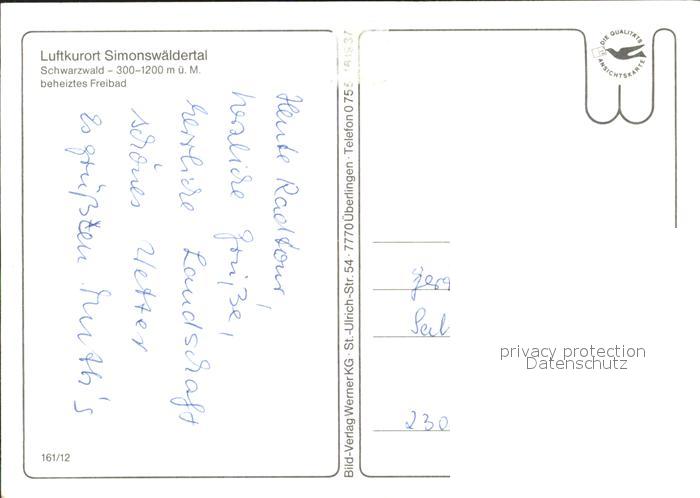 Luftkurort Simonswäldertal
Schwarzwald – 300–1200 m ü. M.
beheiztes Freibad
Heute Radtour,
herzliche Grüße,
herrliche Landschaft
schönes Wetter
Es grüßten
161/12
Bild-Verlag Werner KG · St.-Ulrich-Str. 54 · 7770 Überlingen · Telefon 0 75
DIE QUALITÄTS
ANSICHTSKARTE
230
privacy protection
Datenschutz